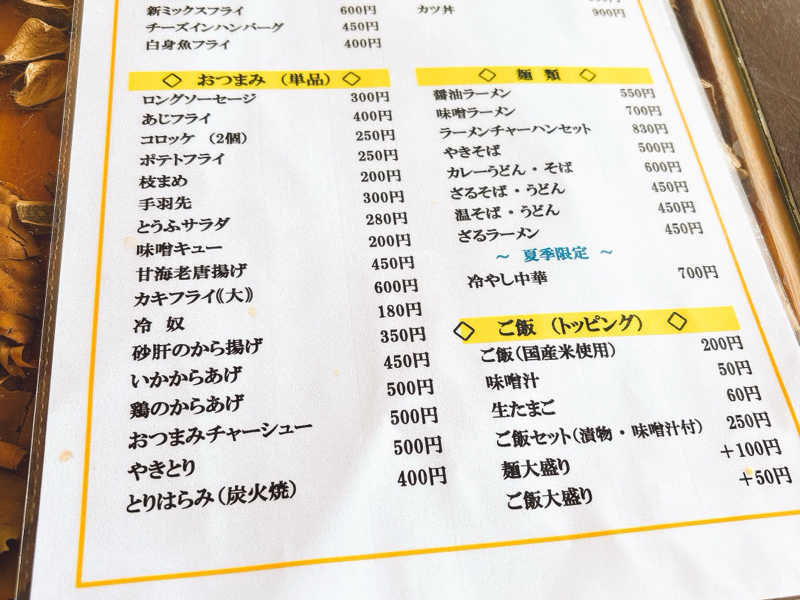 新ミックスフライ 600円
チーズインハンバーグ 450円
白身魚フライ 400円
◇ おつまみ (単品) ◇
ロングソーセージ 300円
あじフライ 400円
コロッケ (2個) 250円
ポテトフライ 250円
枝まめ 200円
手羽先 300円
とうふサラダ 280円
味噌キュー 200円
甘海老唐揚げ 450円
カキフライ《大》 600円
冷 奴 180円
砂肝のから揚げ 350円
いかからあげ 450円
鶏のからあげ 500円
おつまみチャーシュー 500円
やきとり 500円
とりはらみ(炭火焼) 400円
カツ丼 900円
◇ 麺 類 ◇
醤油ラーメン 550円
味噌ラーメン 700円
ラーメンチャーハンセット 830円
やきそば 500円
カレーうどん・そば 600円
ざるそば・うどん 450円
温そば・うどん 450円
ざるラーメン 450円
~ 夏季限定 ~
冷やし中華 700円
◇ ご飯 (トッピング) ◇
ご飯(国産米使用) 200円
味噌汁 50円
生たまご 60円
ご飯セット(漬物・味噌汁付) 250円
麺大盛り +100円
ご飯大盛り +50円